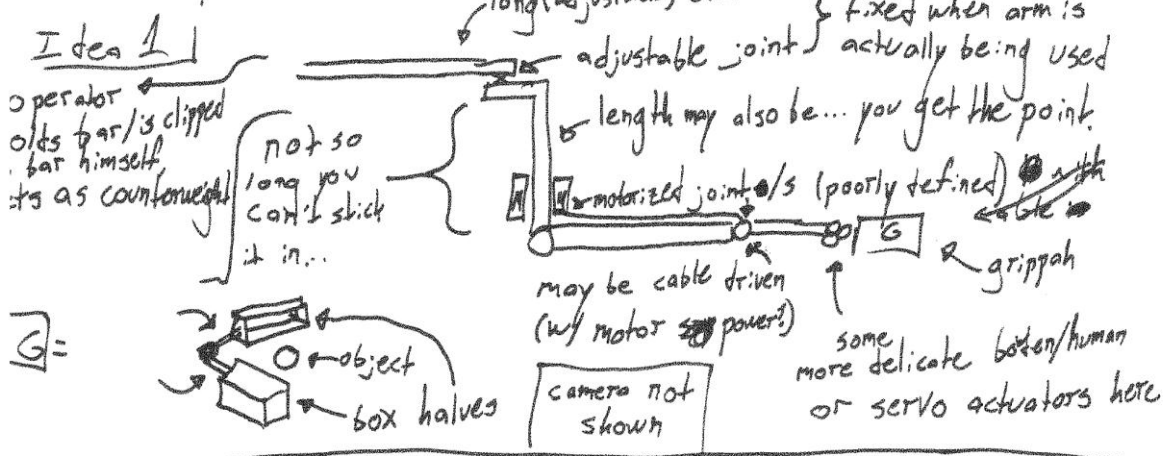 Idea 1
long (adjustable)
adjustable joint } fixed when arm is
actually being used
operator
olds bar/is clipped
bar himself
ts as counterweight
not so
long you
can't stick
it in...
length may also be... you get the point.
M
M
motorized joint/s (poorly defined)
G
grippah
may be cable driven
(w/ motor power!)
some
more delicate
or servo actuators here
G =
object
box halves
camera not
shown